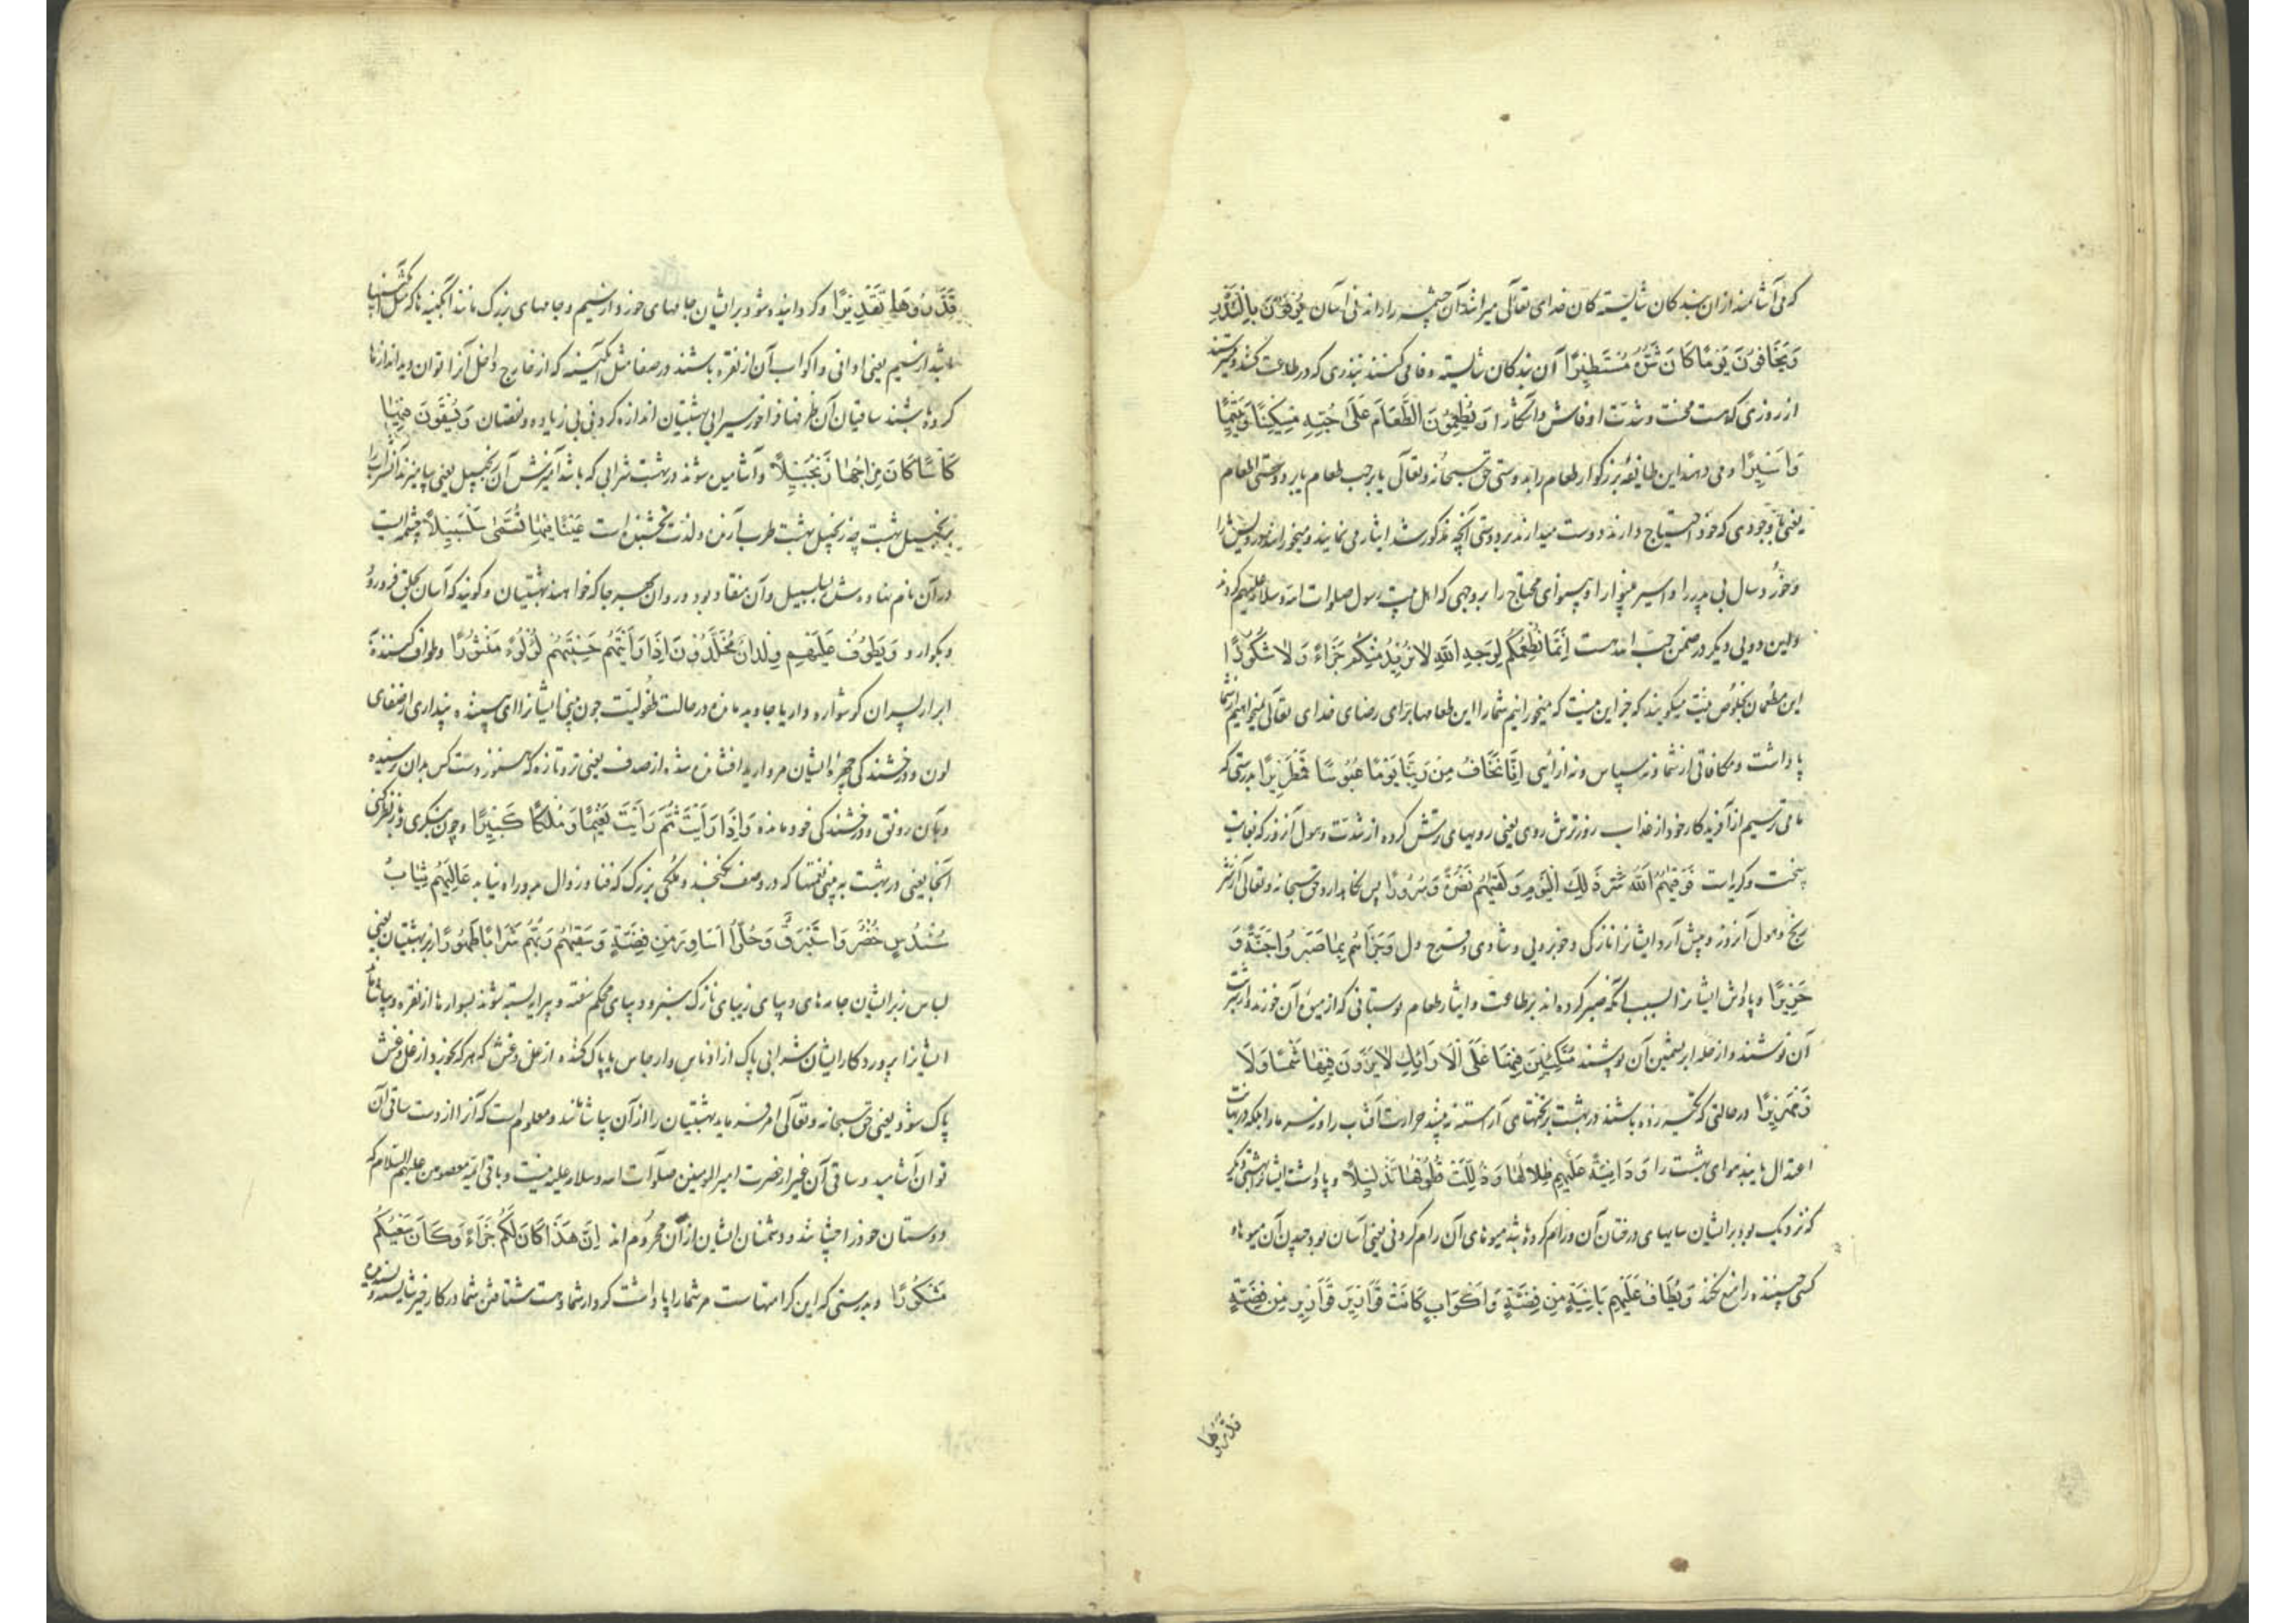 که می آشامند از ان بندکان شایسته کان خدای تعالی میرانند آن چشمه را راندنی آسان یُوفُونَ بِالنَّذْرِ
وَیَخَافُونَ یَوْمًا کَانَ شَرُّهُ مُسْتَطِیرًا آن بندکان شایسته وفا می کنند بنذری که در طاعت کنند و میترسند
از روزی که هست محنت و شدت او فاش و آشکارا وَیُطْعِمُونَ الطَّعَامَ عَلَی حُبِّهِ مِسْکِینًا وَیَتِیمًا
وَاَسِیرًا و می دهند این طایفهٔ بزرکوار طعام را بدوستی حق سبحانه و تعالی یا بر حب طعام یا بر دوستی اطعام
یعنی با وجودی که خود احتیاج دارند و دوست میدارند بر دوستی آنچه مذکور شد ایثار می نمایند و میخورانند درویش را
و خورد سال بی پدر را و اسیر بینوا را بوجهی که اهل بیت رسول صلوات الله و سلامه علیهم کردند
و این دویی دیکر در ضمن حب الله است اِنَّمَا نُطْعِمُکُمْ لِوَجْهِ اللّٰهِ لَا نُرِیدُ مِنْکُمْ جَزَاءً وَلَا شُکُورًا
این مطعمان بخلوص نیت میکویند که جز این نیست که میخورانیم شما را این طعامها برای رضای خدای تعالی نمیخواهیم از شما
پاداشت و مکافاتی از شما و نه سپاس و نه ازائیی اِنَّا نَخَافُ مِنْ رَبِّنَا یَوْمًا عَبُوسًا قَمْطَرِیرًا بدرستی که
ما می ترسیم از آفریدکار خود از عذاب روز ترش روی یعنی رویهای ترش کرده از شدت و هول آنروز که بغایت
سخت و کریه است فَوَقٰیهُمُ اللّٰهُ شَرَّ ذٰلِکَ الْیَوْمِ وَلَقّٰیهُمْ نَضْرَةً وَسُرُورًا پس نکاهدارد حق سبحانه و تعالی از شر
رنج و هول آنروز و پیش آرد ایشانرا نازکی و خوبرویی و شادی و فرح دل وَجَزَاهُمْ بِمَا صَبَرُوا جَنَّةً وَ
حَرِیرًا و پاداش ایشانرا بسبب آنکه صبر کرده اند بر طاعت و ایثار طعام بوستانی که از میوه آن خورند و از شربت
آن نوشند و از حله ابریشمین آن پوشند مُتَّکِئِینَ فِیهَا عَلَی الْاَرَائِکِ لَا یَرَوْنَ فِیهَا شَمْسًا وَلَا
زَمْهَرِیرًا در حالتی که تکیه زده باشند در بهشت بر تختهای آراسته نه بینند حرارت آفتاب را و نه سرما را بلکه در نهایت
اعتدال یابند هوای بهشت را وَدَانِیَةً عَلَیْهِمْ ظِلَالُهَا وَذُلِّلَتْ قُطُوفُهَا تَذْلِیلًا و پاداشت ایشان بهشتی دیکر
که نزدیک بود بر ایشان سایهای درختان آن و رام کرده باشد میوهای آن رام کردنی یعنی آسان بود چیدن آن میوها و
کسی چیننده را منع نکند وَیُطَافُ عَلَیْهِمْ بِاٰنِیَةٍ مِنْ فِضَّةٍ وَاَکْوَابٍ کَانَتْ قَوَارِیرَ قَوَارِیرَ مِنْ فِضَّةٍ
قدروها
قَدَّرُوهَا تَقْدِیرًا و کردانیده شود بر ایشان جامهای خورد از سیم و جامهای بزرک مانند آبکینه
باشد از سیم یعنی اوانی و اکواب آن از نقره باشند در صفا مثل آبکینه که از خارج داخل آنرا توان دید اندازها
کرده باشند ساقیان آن ظرفها فراخور سیرابی بهشتیان اندازه کردنی بی زیاده و نقصان وَیُسْقَوْنَ فِیهَا
کَاْسًا کَانَ مِزَاجُهَا زَنْجَبِیلًا و آشامیده شوند در بهشت شرابی که باشد آمیزش آن زنجبیل یعنی بیامیزند آن شراب را
بزنجبیل بهشت چه زنجبیل بهشت طرب آرنده و لذت بخشنده است عَیْنًا فِیهَا تُسَمّٰی سَلْسَبِیلًا چشمه ایست
در آن نام نهاده شده سلسبیل و آن منقاد بود و روان بهر جا که خواهند بهشتیان و کویند که آسان بحلق فرو رود
و بکوارد وَیَطُوفُ عَلَیْهِمْ وِلْدَانٌ مُخَلَّدُونَ اِذَا رَاَیْتَهُمْ حَسِبْتَهُمْ لُؤْلُؤًا مَنْثُورًا و طواف کنند
ابرار پسران کوشواره دار یا جاوید مانده در حالت طفولیت چون بینی ایشانرا ای بیننده پنداری از صفای
لون و درخشندکی چهره ایشان مروارید افشانده شده از صدف یعنی تر و تازه که هنوز دست کس بدان نرسیده
و بآن رونق و درخشندکی خود مانده وَاِذَا رَاَیْتَ ثَمَّ رَاَیْتَ نَعِیمًا وَمُلْکًا کَبِیرًا و چون بنکری و باز نکری
آنجا یعنی در بهشت به بینی نعمتها که در وصف نکنجد و ملکی بزرک که فنا و زوال بدو راه نیابد عَالِیَهُمْ ثِیَابُ
سُنْدُسٍ خُضْرٌ وَاِسْتَبْرَقٌ وَحُلُّوا اَسَاوِرَ مِنْ فِضَّةٍ وَسَقٰیهُمْ رَبُّهُمْ شَرَابًا طَهُورًا از بر بهشتیان یعنی
لباس زبر ایشان جامه های دیبای زیبای نازک سبز و دیبای محکم بافته و پیرایه بسته شوند بسوارها از نقره و بیاشاماند
ایشانرا پروردکار ایشان شرابی پاک از ادناس و ارجاس یا پاک کننده از غل و غش که هر که بخورد از غل و غش
پاک شود یعنی حق سبحانه و تعالی امر فرماید بهشتیان را از آن بیاشامند و معلوم است که آنرا از دست ساقی آن
توان آشامید و ساقی آن غیر از حضرت امیر المومنین صلوات الله و سلامه علیه نیست و باقی ائمه معصومین علیهم السلام که
دوستان خود را چشانند و دشمنان ایشان از آن محروم اند اِنَّ هٰذَا کَانَ لَکُمْ جَزَاءً وَکَانَ سَعْیُکُمْ
مَشْکُورًا و بدرستی که این کرامتهاست مر شما را پاداشت کردار شما و هست شتافتن شما در کار خیر شایسته و